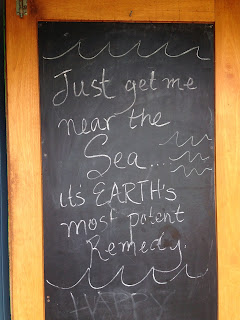 Just get me
near the
Sea...
it's EARTH's
most potent
Remedy.
HAPPY